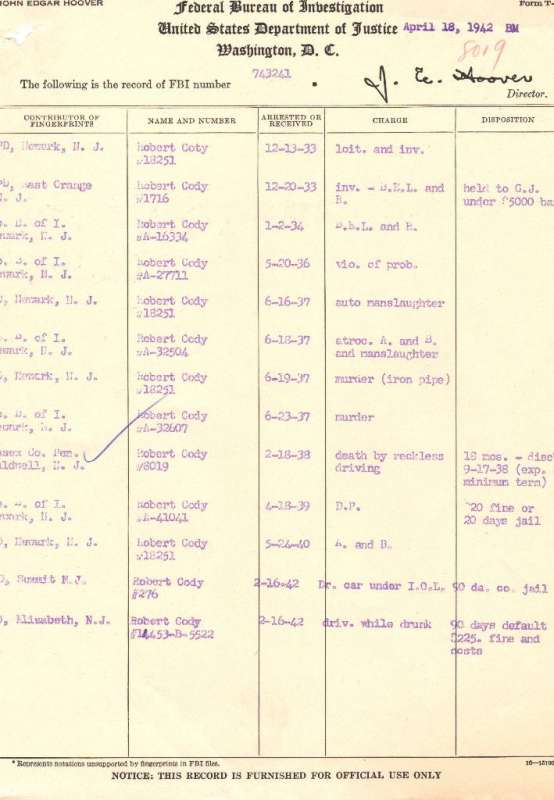 JOHN EDGAR HOOVER
Federal Bureau of Investigation
Form
United States Department of Justice
April 18, 1942 BM
Washington, D. C.
8019
The following is the record of FBI number 743241 .
J. E. Hoover
Director.
CONTRIBUTOR OF FINGERPRINTS NAME AND NUMBER ARRESTED OR RECEIVED CHARGE DISPOSITION
PD, Newark, N. J. Robert Coty 12-13-33 loit. and inv.
#18251
PD, East Orange Robert Cody 12-20-33 inv. - B.E.L. and held to G.J.
N. J. #1716 R. under $5000 ba
B. of I. Robert Cody 1-2-34 B.E.L. and R.
Newark, N. J. #A-16334
B. of I. Robert Cody 5-20-36 vio. of prob.
Newark, N. J. #A-27711
Newark, N. J. Robert Cody 6-16-37 auto manslaughter
#18251
B. of I. Robert Cody 6-18-37 atroc. A. and B.
Newark, N. J. #A-32504 and manslaughter
Newark, N. J. Robert Cody 6-19-37 murder (iron pipe)
#18251
B. of I. Robert Cody 6-23-37 murder
Newark, N. J. #A-32607
ssex Co. Pen. Robert Cody 2-18-38 death by reckless 18 mos. - disc
aldwell, N. J. #8019 driving 9-17-38 (exp.
minimum term)
B. of I. Robert Cody 4-18-39 D.P. $20 fine or
Newark, N. J. #A-41041 20 days jail
Newark, N. J. Robert Cody 5-24-40 A. and B.
#18251
Summit N.J. Robert Cody 2-16-42 Dr. car under I.O.L. 90 da. co. jail
#276
Elizabeth, N.J. Robert Cody 2-16-42 driv. while drunk 90 days default
#14453-B-5522 $225. fine and
costs
* Represents notations unsupported by fingerprints in FBI files.
NOTICE: THIS RECORD IS FURNISHED FOR OFFICIAL USE ONLY